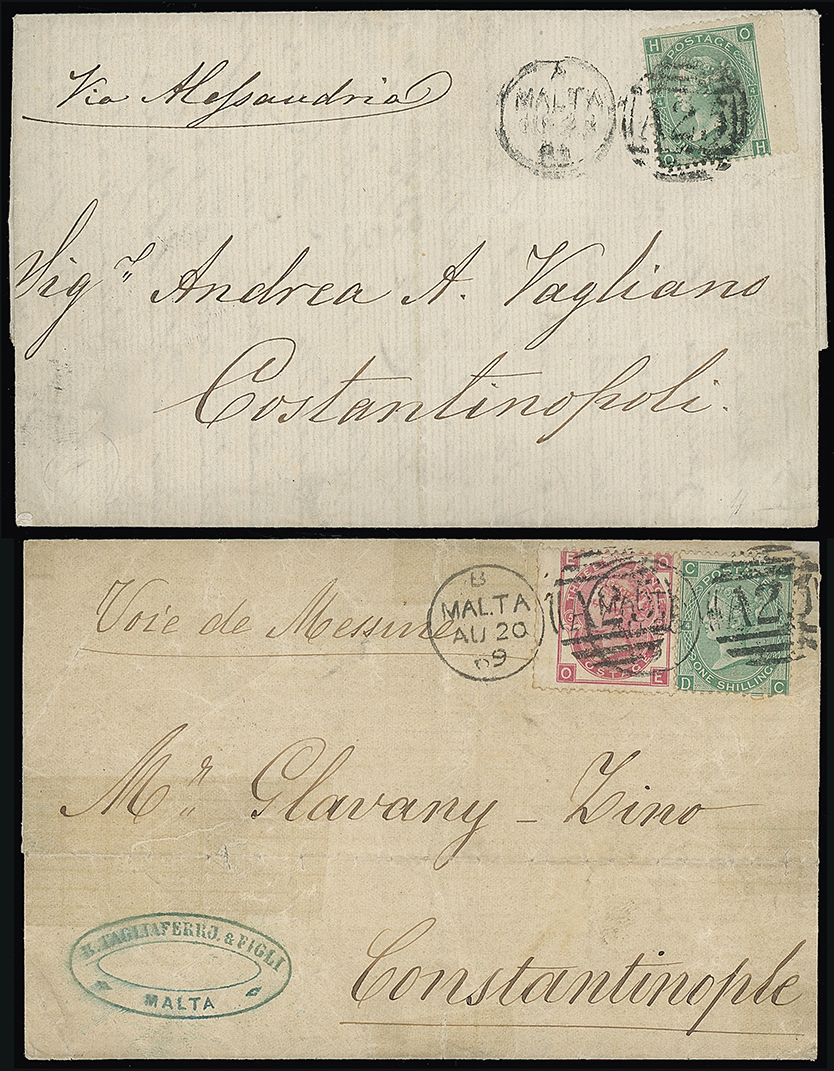 Via Alessandria
A
MALTA
H POSTAGE O
A25
O H
Sigr. Andrea A. Vagliano
Costantinopoli.
Voie de Messine
B
MALTA
AU 20
69
E O
A25
MALTA
O E
C POSTAGE C
A25
D ONE SHILLING C
Mr. Glavany - Zino
Constantinople
TAGLIAFERRO. & FIGLI
MALTA